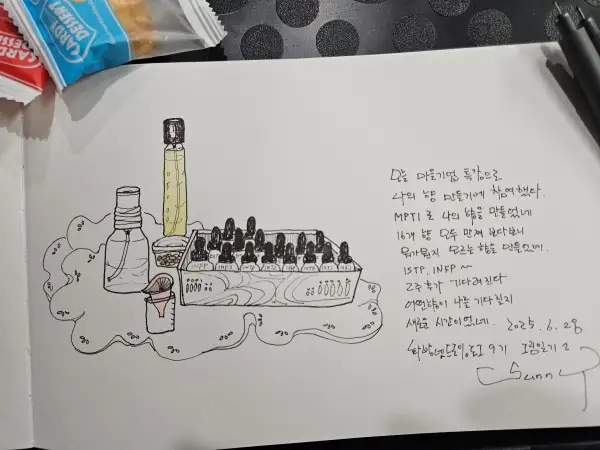 CARDY
DESSERT
오늘 마을기업 특강으로
나의 향 만들기에 참여했다.
MPTI 로 나의 향을 만들었네
16개 향 모두 만져 보다보니
뭐가뭔지 모르는 향을 만들었네.
ISTP, INFP ~
2주후가 기다려진다
어떤향이 나를 기다릴지
새로운 시간이었네. 2025. 6. 28
9기 그림일기 2
Sunny